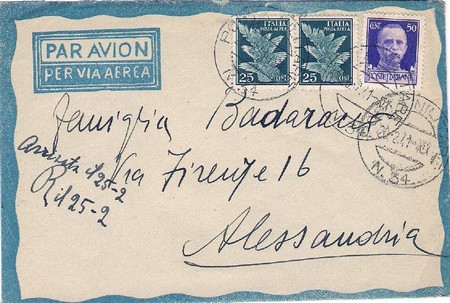 PAR AVION
PER VIA AEREA
ITALIA
POSTA AEREA
25 CENT
ITALIA
POSTA AEREA
25 CENT
CENT. 50
POSTE ITALIANE
N. 34
N. 34
famiglia Badaracco
Via Firenze 16
Alessandria
il 25-2
R il 25-2